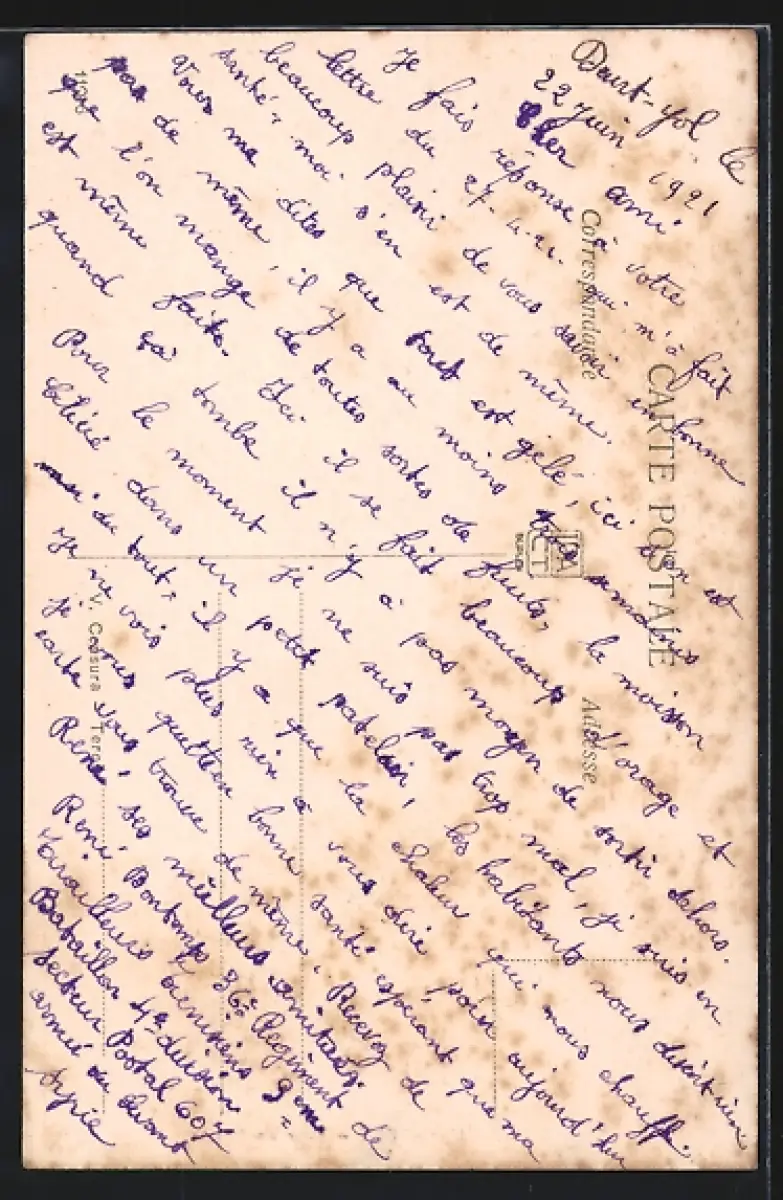 Daurt-yol le
22 juin 1921
Cher ami
Je fais réponse à votre
lettre du 27. 4. 21. qui m'à fait
beaucoup plaisir de vous savoir en bonne
santé, moi s'en est de même.
Vous me dites que tout est gelé, ici s'en est
pas de même, il y a au moins
que l'on mange de toutes sortes de fruits, la moisson
est même faite. Ici il se fait beaucoup d'orage et
quand ça tombe il n'y à pas moyen de sortir dehors.
Pour le moment je ne suis pas trop mal, je suis en
dans un petit patelin, les habitants nous disent rien
du tout, il y a que la chaleur qui nous chauffe.
Je ne vois plus rien à vous dire pour aujourd'hui
je vous quitte en bonne santé espérant que ma
carte vous trouve de même. Recevez de
René, ses meilleurs amitiés.
René Bontemps 36e Régiment de
Tirailleurs tunisiens 3eme
Bataillon 4e division
Secteur Postal 607
armée du Levant
Syrie
CARTE POSTALE
Correspondance
Adresse
V. Censura Terni